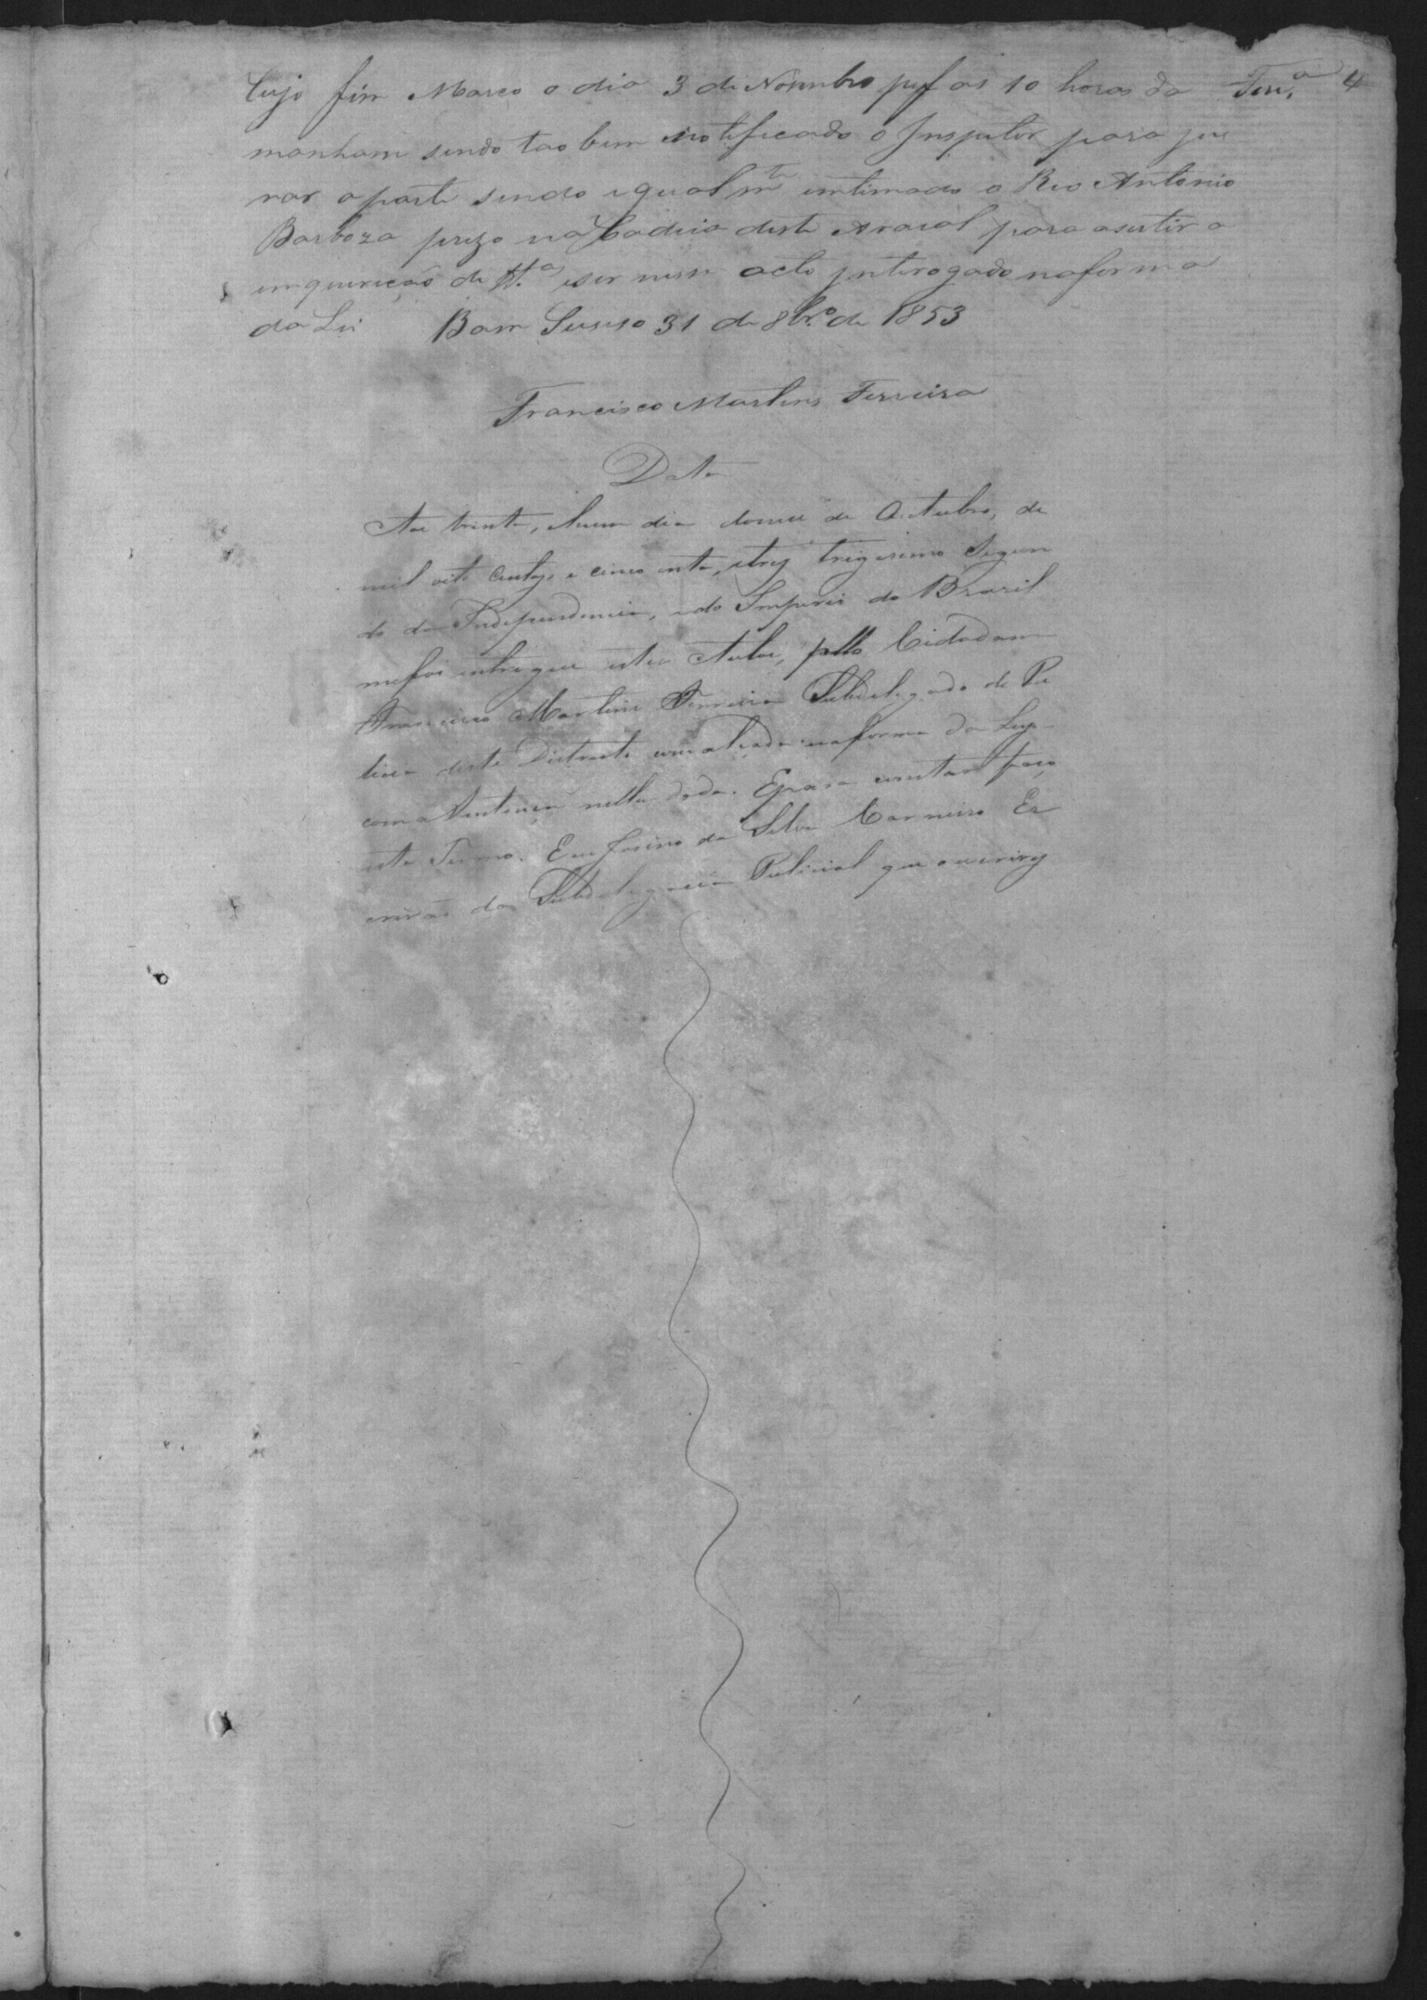 Cujo fim Marco o dia 3 de Novembro pf as 10 horas da Ferr.ª 4
manham sendo tao bem notificado o Inspector para ju
rar a parte sendo igualm.te intimado o Reo Antonio
Barboza prezo na Cadeia deste Arraial para asestir a
inquirição de tt.as e ser nesse acto interogado na forma
da Lei Bom Sucesso 31 de 8br.o de 1853
Francisco Martins Ferreira
Data
Aos trinta, hum dia do mez de Outubro, de
mil oito centos e cincoenta, e trez trigesimo Segun
do da Independencia, e do Imperio do Brazil
me foi entregue estes Autos, pello Cidadam
Francisco Martins Ferreira Subdelegado de Po
licia deste Districto com alçada na forma da Ley
com a Sentença nella dada. E para constar faço
este Termo. Eu da Silva Carneiro Es
crivão da Subdelegacia Policial que o escrevy